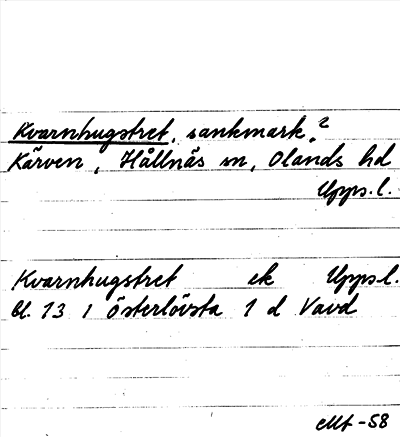 Kvarnhugstret, sankmark?
Kärven, Hållnäs sn, Olands hd
Upps.l.
Kvarnhugstret ek Upps.l.
bl. 13 1 Österlövsta 1 d Vavd
-58